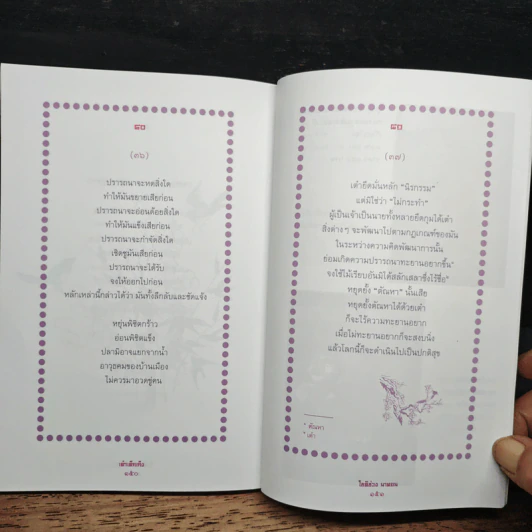 (๓๖)
ปรารถนาจะหดสิ่งใด
ทำให้มันขยายเสียก่อน
ปรารถนาจะอ่อนด้อยสิ่งใด
ทำให้มันแข็งเสียก่อน
ปรารถนาจะกำจัดสิ่งใด
เชิดชูมันเสียก่อน
ปรารถนาจะได้รับ
จงให้ออกไปก่อน
หลักเหล่านี้กล่าวได้ว่า มันทั้งลึกลับและชัดแจ้ง
หยุ่นพิชิตกร้าว
อ่อนพิชิตแข็ง
ปลามิอาจแยกจากน้ำ
อาวุธคมของบ้านเมือง
ไม่ควรมาอวดขู่คน
เต๋าเต็กเก็ง
(๓๗)
เต๋ายึดมั่นหลัก "นิรกรรม"
แต่มิใช่ว่า "ไม่กระทำ"
ผู้เป็นเจ้าเป็นนายทั้งหลายยึดกุมได้เต๋า
สิ่งต่างๆ จะพัฒนาไปตามกฎเกณฑ์ของมัน
ในระหว่างความคิดพัฒนาการนั้น
ย่อมเกิดความปรารถนาทะยานอยากขึ้น*
จงใช้ไม้เรียบอันมิได้สลักเสลาซึ่งไร้ชื่อ*
หยุดยั้ง "ตัณหา" นั้นเสีย
หยุดยั้งตัณหาได้ด้วยเต๋า
ก็จะไร้ความทะยานอยาก
เมื่อไม่ทะยานอยากก็จะสงบนิ่ง
แล้วโลกนี้ก็จะดำเนินไปเป็นปกติสุข
* ตัณหา
* เต๋า